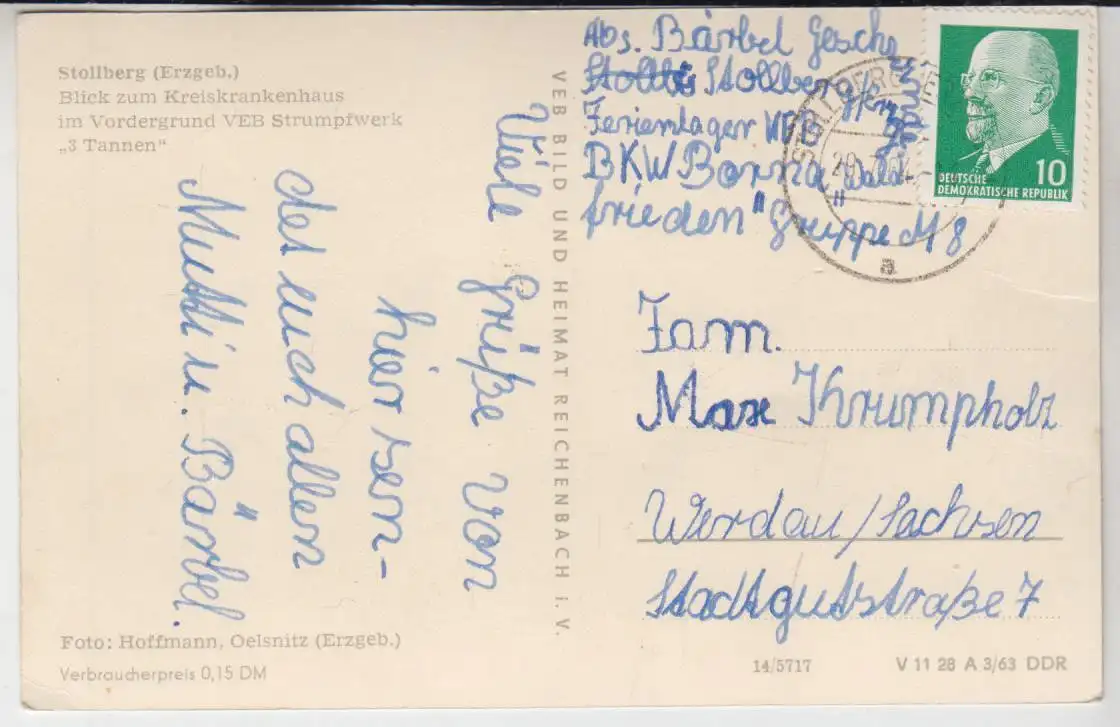 Stollberg (Erzgeb.)
Blick zum Kreiskrankenhaus
im Vordergrund VEB Strumpfwerk
„3 Tannen“
Viele Grüße von
hier sen-
det euch allen
Mutti u. Bärbel.
Foto: Hoffmann, Oelsnitz (Erzgeb.)
Verbraucherpreis 0,15 DM
VEB BILD UND HEIMAT REICHENBACH i. V.
Abs. Bärbel
Stollberg
Ferienlager VEB
BKW Borna „Wald-
frieden" Gruppe M 8
DEUTSCHE
DEMOKRATISCHE REPUBLIK
10
a
Fam.
Max Krumpholz
Werdau/Sachsen
Stadtgutstraße 7
14/5717
V 11 28 A 3/63 DDR